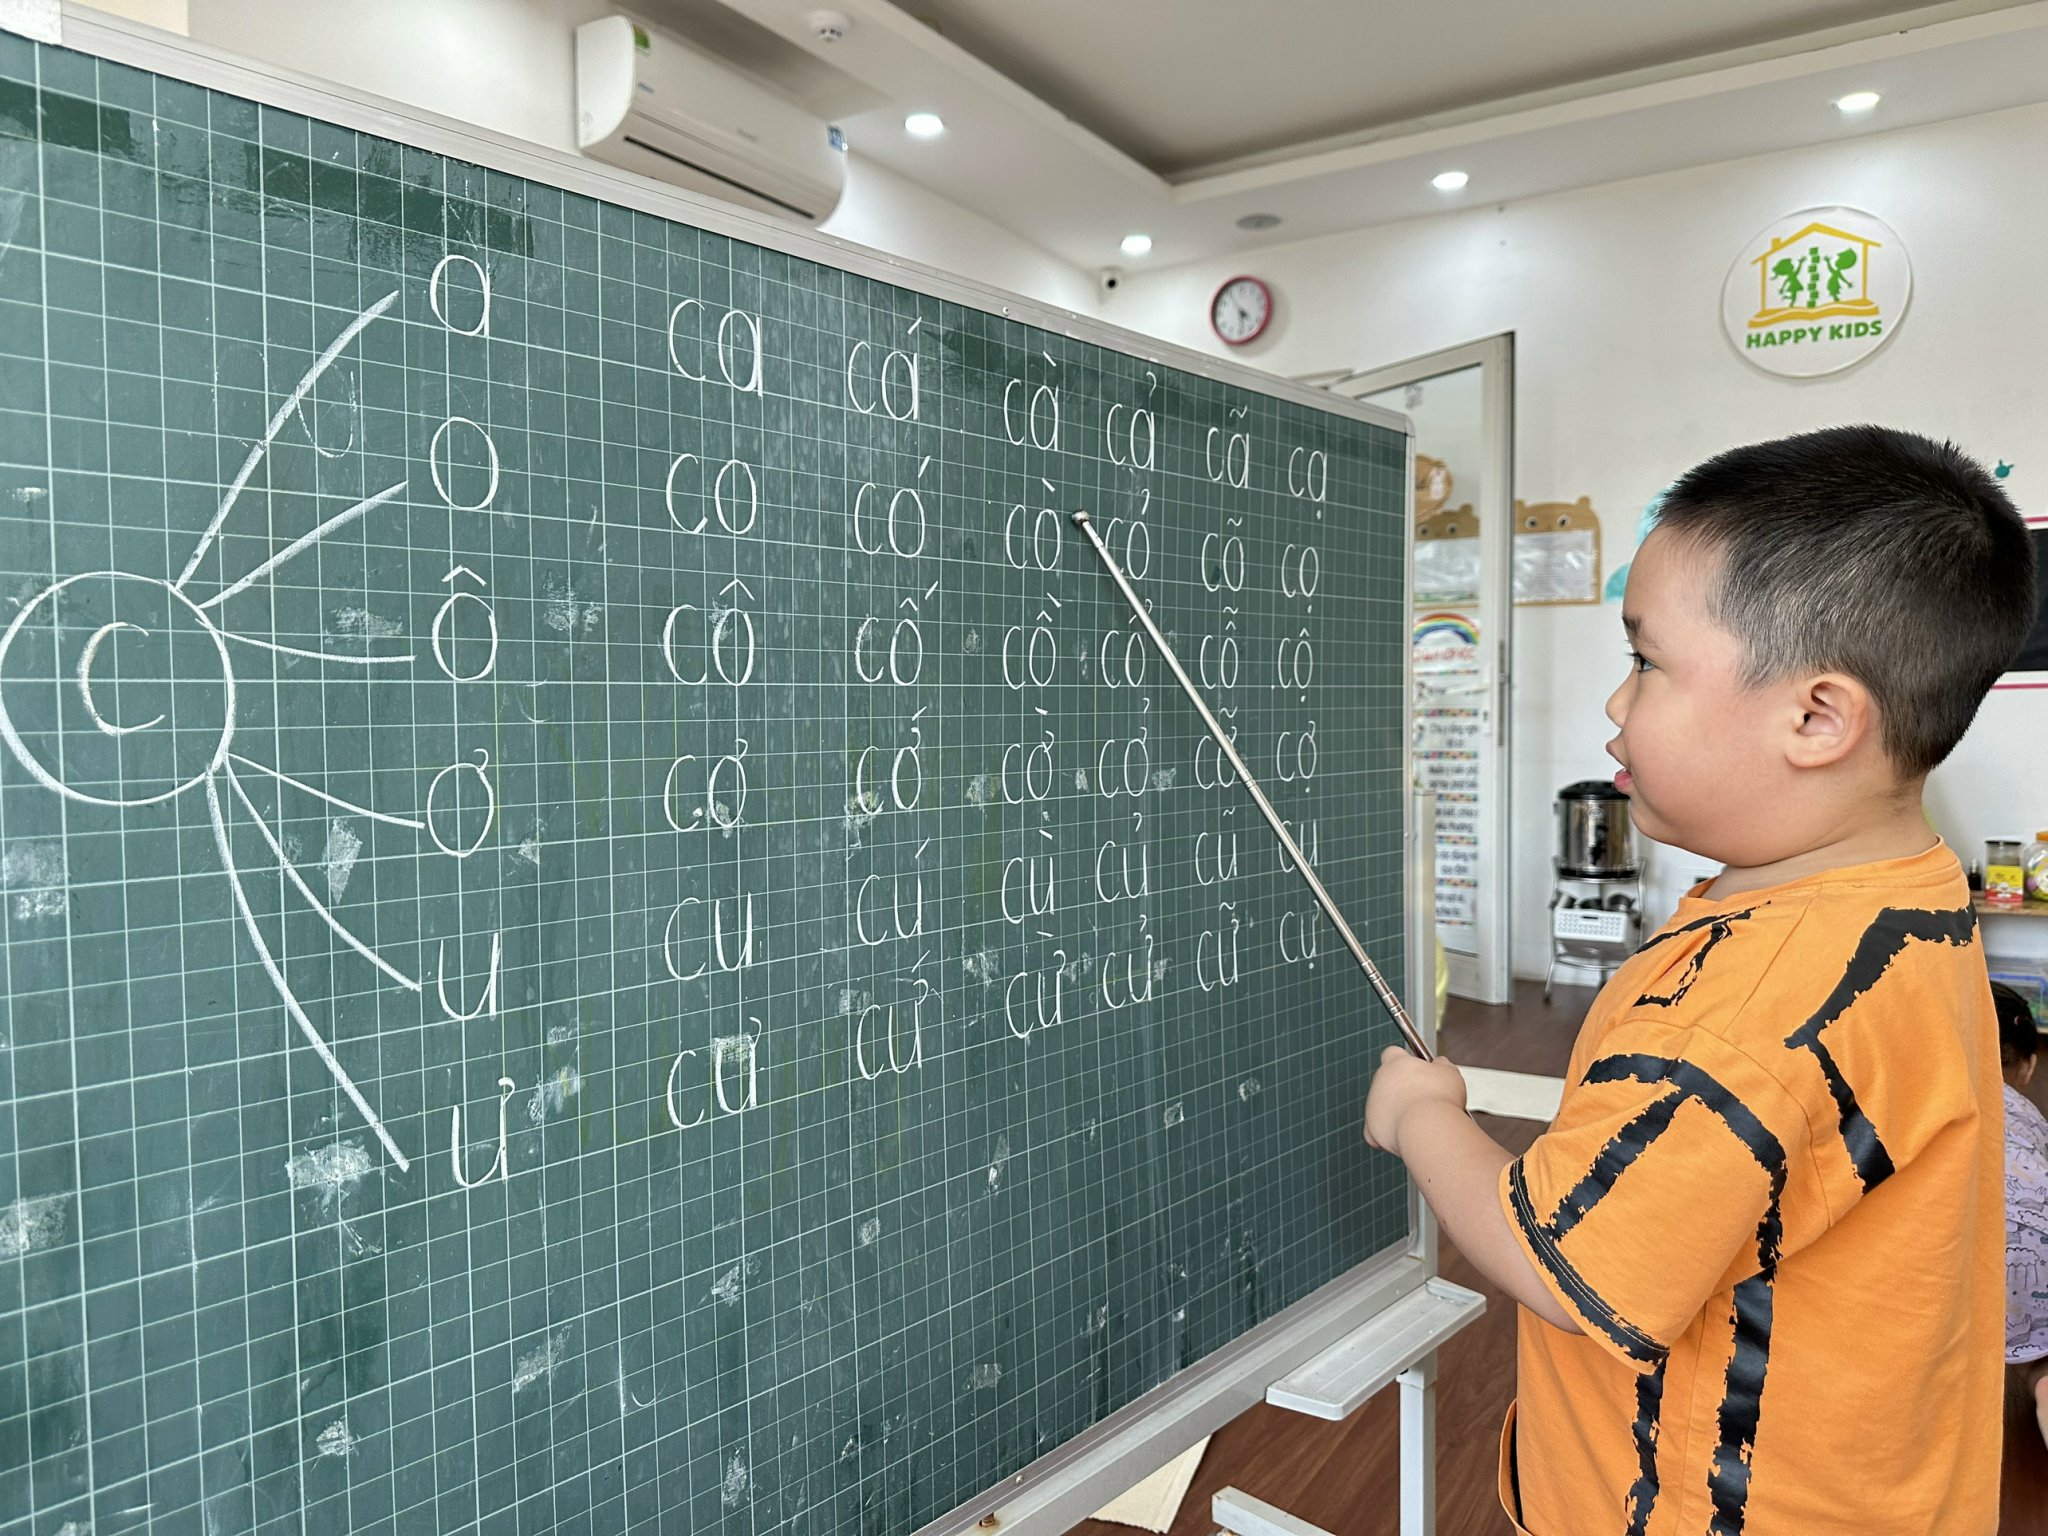 a ca cá cà cả cã cạ
o co có cò cỏ cõ cọ
c
ô cô cố cồ cổ cỗ cộ
ơ cơ cớ cờ cở cỡ cợ
u cu cú cù củ cũ cụ
ư cư cứ cừ cử cữ cự
HAPPY KIDS